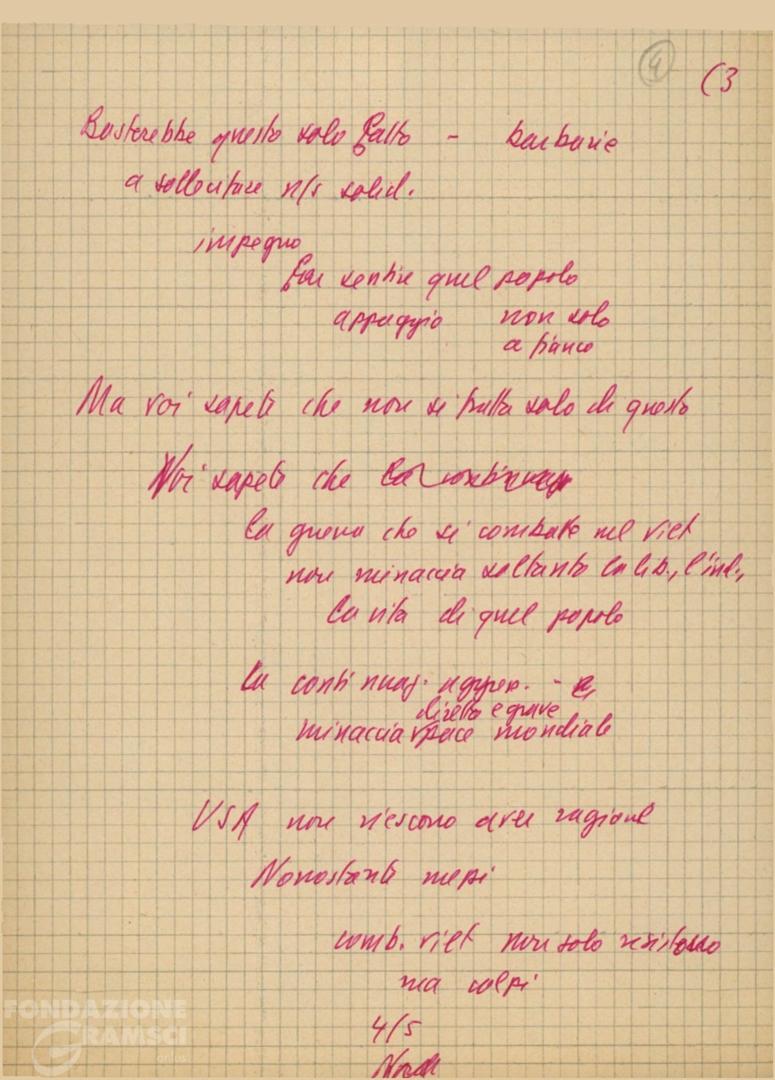 4
(3
Basterebbe questo solo fatto - barbarie
a sollecitare n/s solid.
impegno
far sentire quel popolo
appoggio non solo
a fianco
Ma voi sapete che non si tratta solo di questo
Voi sapete che la continuaz
la guerra che si combatte nel viet
non minaccia soltanto la lib., l'ind.,
la vita di quel popolo
la continuaz. aggres. - è
diretta e grave
minaccia pace mondiale
USA non riescono aver ragione
Nonostante mezzi
comb. viet non solo resistono
ma colpi
4/5
Nord
FONDAZIONE
GRAMSCI
onlus